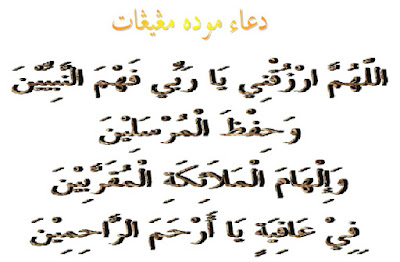 دعاء موده مڠيڠات
اَللّٰهُمَّ ارْزُقْنِي يَا رَبِّي فَهْمَ النَّبِيِّيْنَ
وَحِفْظَ الْمُرْسَلِيْنَ
وَإِلْهَامَ الْمَلَائِكَةِ الْمُقَرَّبِيْنَ
فِيْ عَافِيَةٍ يَا أَرْحَمَ الرَّاحِمِيْنَ